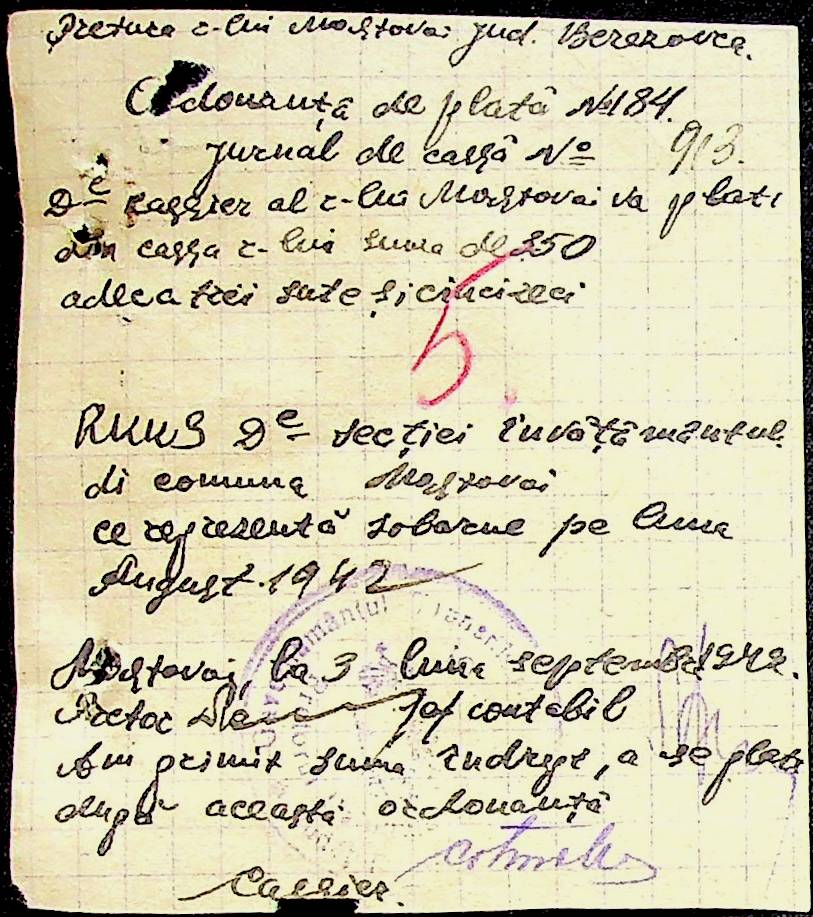 Pretura r-lui Mostovoi jud. Berezovca.
Ordonanță de plată № 184.
jurnal de cassă № 913.
De cassier al r-lui Mostovoi va plati
din cassa r-lui suma de 350
adeca trei sute și cincizeci
5.
De secției învățământul
di comuna Mostovoi
ce reprezentă pe luna
August. 1942
Mostovoi, la 3 luna septembr 1942.
Pretor Șef contabil
Am primit suma îndrept, a se plati
după această ordonanță
Cassier.